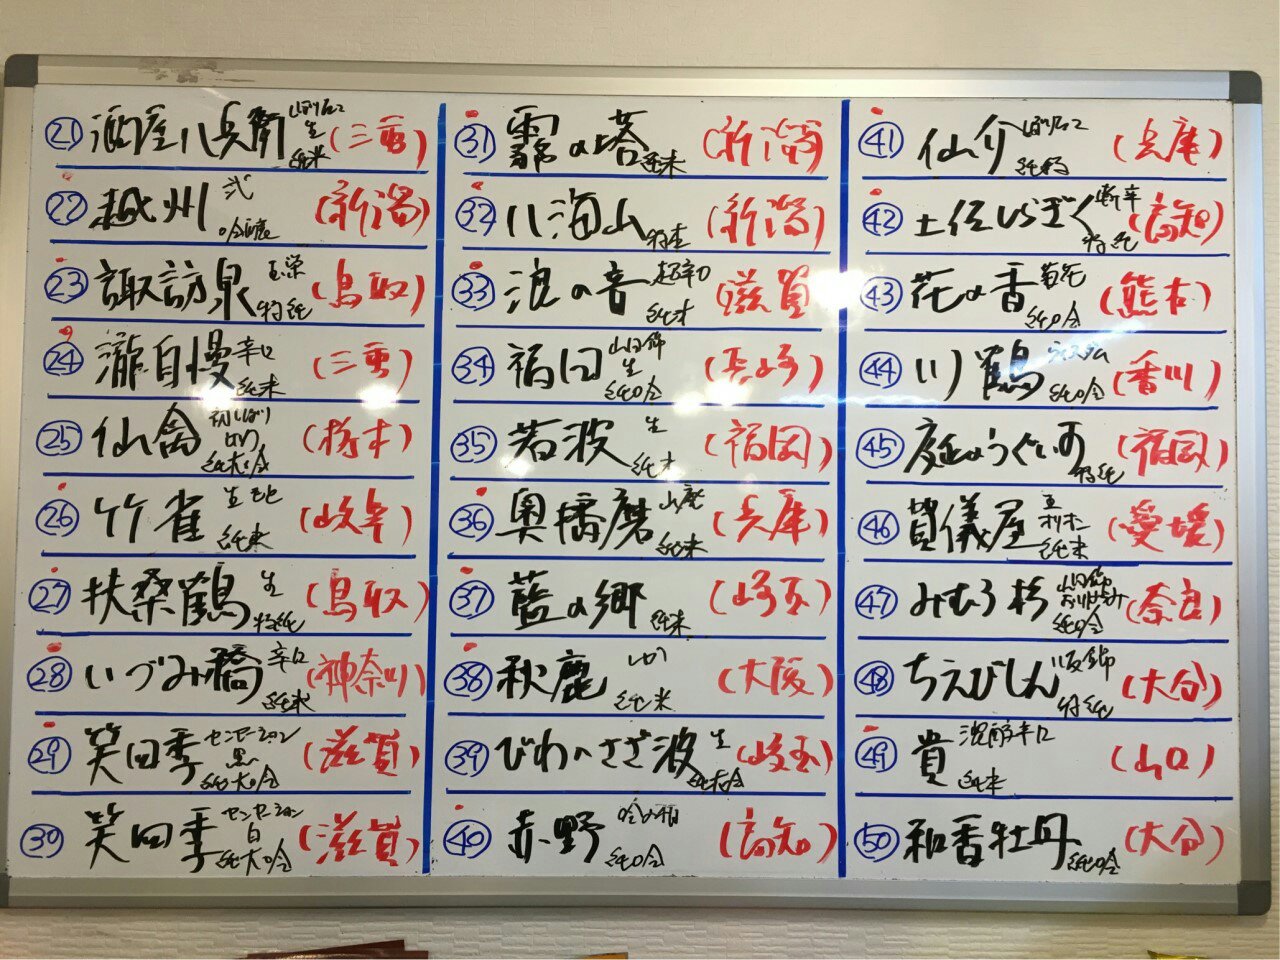 21 酒屋八兵衛 しぼりたて 生 純米 (三重)
22 越州 弐 吟醸 (新潟)
23 諏訪泉 玉栄 特純 (鳥取)
24 瀧自慢 辛口 純米 (三重)
25 仙禽 初しぼり 純大吟 (栃木)
26 竹雀 生もと 純米 (岐阜)
27 扶桑鶴 生 特純 (鳥取)
28 いづみ橋 辛口 純米 (神奈川)
29 笑四季 センセーション 黒 純大吟 (滋賀)
30 笑四季 センセーション 白 純大吟 (滋賀)
31 霧の塔 純米 (新潟)
32 八海山 特本 (新潟)
33 浪の音 超辛口 純米 (滋賀)
34 福田 山田錦 生 純吟 (長崎)
35 若波 生 純米 (福岡)
36 奥播磨 山廃 純米 (兵庫)
37 藍の郷 純米 (埼玉)
38 秋鹿 しか 純米 (大阪)
39 びわのさざ波 生 純大吟 (埼玉)
40 赤野 吟の夢 純吟 (高知)
41 仙介 しぼりたて 純米 (兵庫)
42 土佐しらぎく 斬辛 特純 (高知)
43 花の香 菊花 純吟 (熊本)
44 川鶴 純吟 (香川)
45 庭のうぐいす 特純 (福岡)
46 賀儀屋 純米 (愛媛)
47 みむろ杉 山田錦 おりがらみ 純吟 (奈良)
48 ちえびじん 八反錦 特純 (大分)
49 貴 濃醇辛口 純米 (山口)
50 和香牡丹 純吟 (大分)